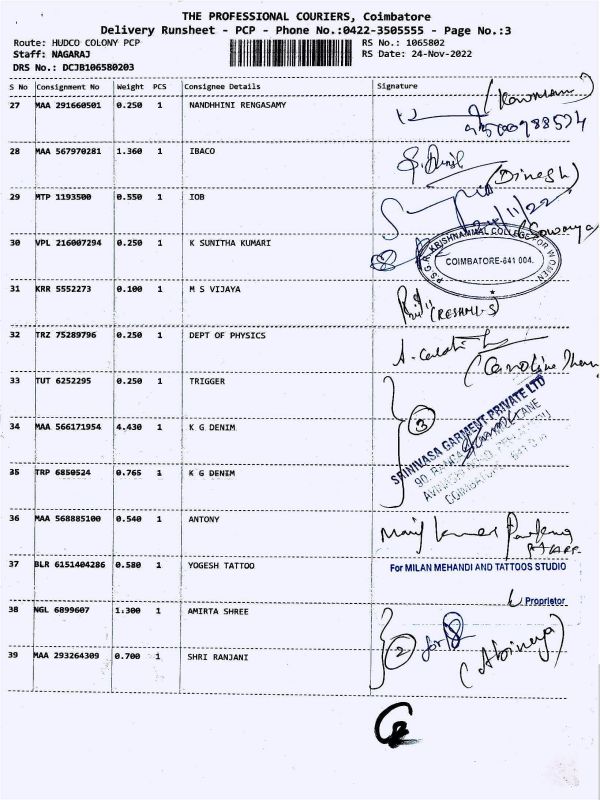 THE PROFESSIONAL COURIERS, Coimbatore
Delivery Runsheet - PCP - Phone No.:0422-3505555 - Page No.:3
Route: HUDCO COLONY PCP
RS No.: 1065802
Staff: NAGARAJ
RS Date: 24-Nov-2022
DRS No.: DCJB106580203
S No Consignment No Weight PCS Consignee Details Signature
27 MAA 291660501 0.250 1 NANDHHINI RENGASAMY
28 MAA 567970281 1.360 1 IBACO
(Dinesh)
29 MTP 1193500 0.550 1 IOB
24/11/22
(Sowanya)
30 VPL 216007294 0.250 1 K SUNITHA KUMARI
P.S.G.R. KRISHNAMMAL COLLEGE FOR WOMEN
COIMBATORE-641 004.
31 KRR 5552273 0.100 1 M S VIJAYA
(RESHMI-S)
32 TRZ 75289796 0.250 1 DEPT OF PHYSICS
(Caroline
33 TUT 6252295 0.250 1 TRIGGER
3
34 MAA 566171954 4.430 1 K G DENIM
SRINIVASA GARMENT PRIVATE LTD
COIMBATORE
35 TRP 6850524 0.765 1 K G DENIM
36 MAA 568885100 0.540 1 ANTONY
37 BLR 6151404286 0.580 1 YOGESH TATTOO
For MILAN MEHANDI AND TATTOOS STUDIO
Proprietor
38 NGL 6899607 1.300 1 AMIRTA SHREE
2 for
(Abinaya)
39 MAA 293264309 0.700 1 SHRI RANJANI